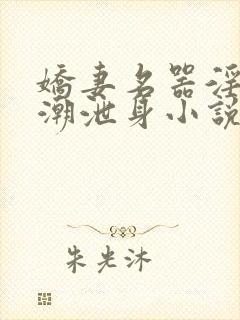 嬌妻名器淫
潮泄身小說
朱光沐